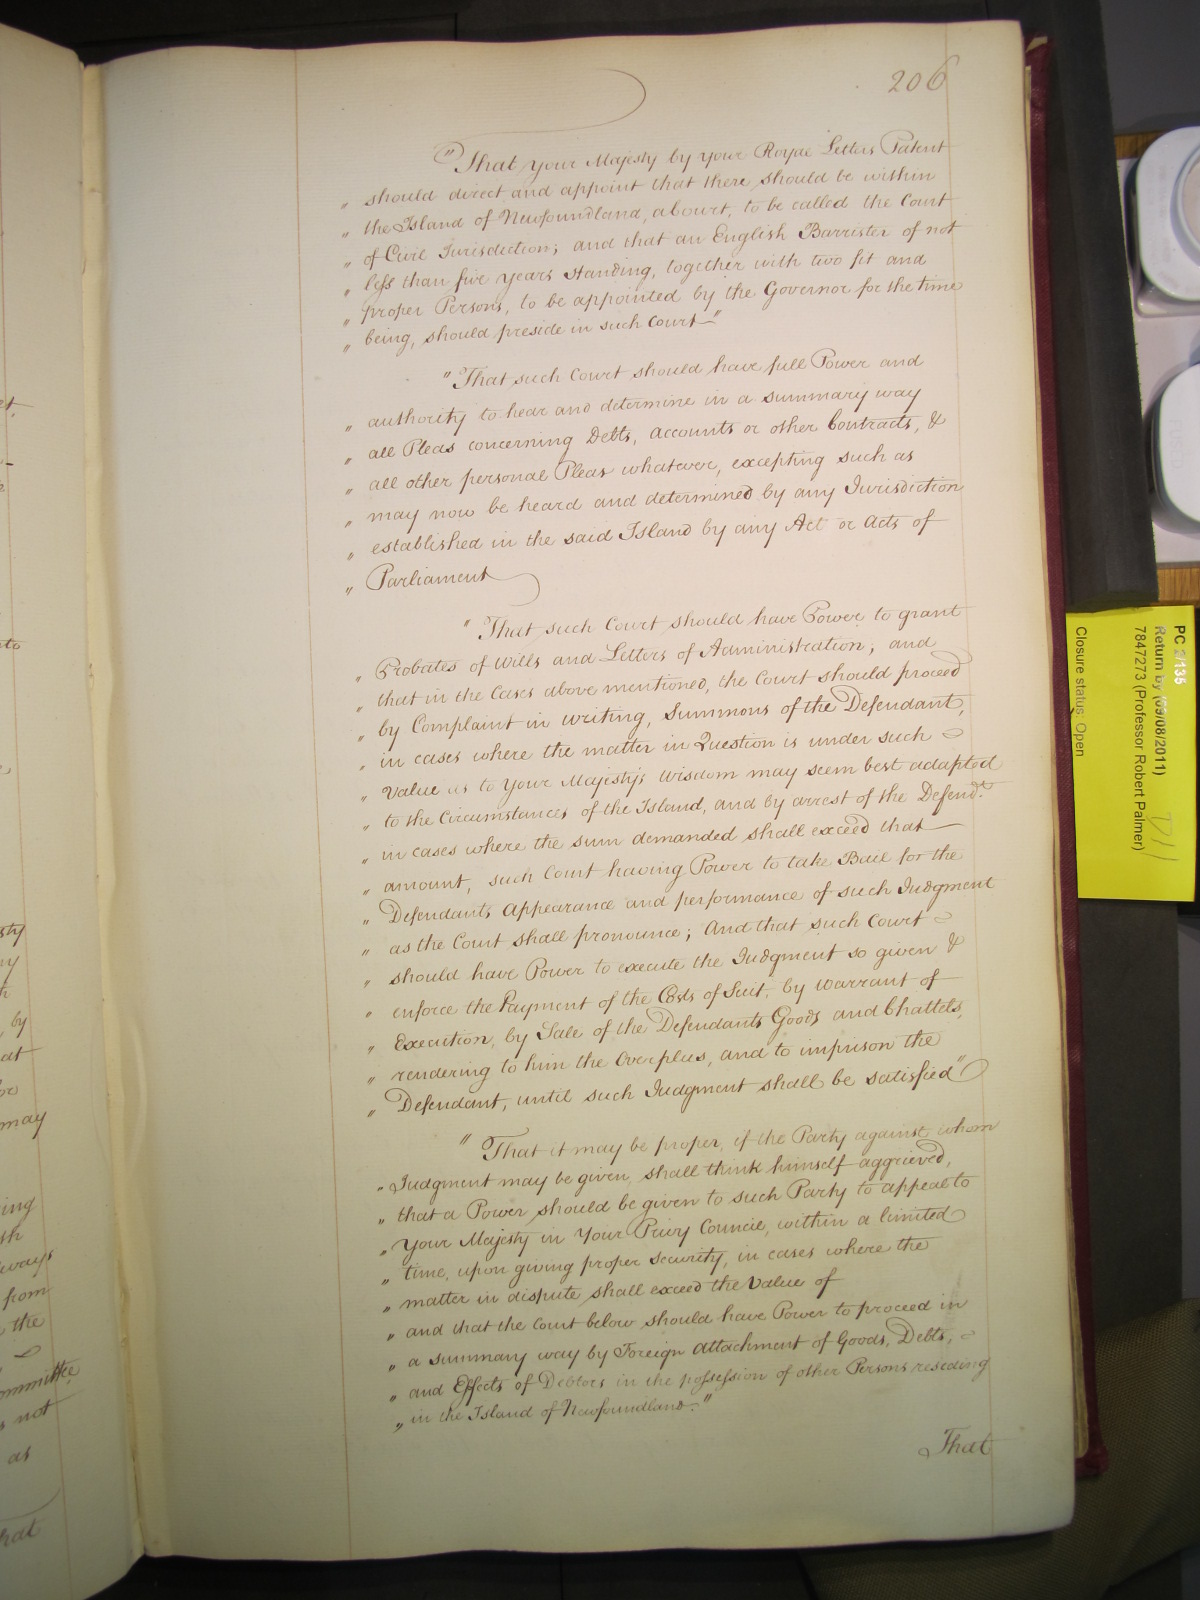 206
"That your Majesty by your Royal Letters Patent
" should direct and appoint that there should be within
" the Island of Newfoundland, a Court, to be called the Court
" of Civil Jurisdiction; and that an English Barrister of not
" less than five years standing, together with two fit and
" proper Persons, to be appointed by the Governor for the time
" being, should preside in such Court"
"That such Court should have full Power and
" authority to hear and determine in a summary way
" all Pleas concerning Debts, Accounts or other Contracts, &
" all other personal Pleas whatever, excepting such as
" may now be heard and determined by any Jurisdiction
" established in the said Island by any Act or Acts of
" Parliament
" That such Court should have Power to grant
" Probates of Wills and Letters of Administration; and
" that in the Cases above mentioned, the Court should proceed
" by Complaint in writing, Summons of the Defendant,
" in cases where the matter in Question is under such
" Value as to Your Majesty's Wisdom may seem best adapted
" to the Circumstances of the Island, and by arrest of the Defendt.
" in cases where the sum demanded shall exceed that
" amount, such Court having Power to take Bail for the
" Defendants Appearance and performance of such Judgment
" as the Court shall pronounce; And that such Court
" should have Power to execute the Judgment so given &
" enforce the Payment of the Costs of Suit, by Warrant of
" Execution, by Sale of the Defendants Goods and Chattels,
" rendering to him the Overplus, and to imprison the
" Defendant, until such Judgment shall be satisfied"
" That it may be proper, if the Party against whom
" Judgment may be given, shall think himself aggrieved,
" that a Power should be given to such Party to appeal to
" Your Majesty in Your Privy Council, within a limited
" time, upon giving proper security, in cases where the
" matter in dispute shall exceed the Value of
" and that the Court below should have Power to proceed in
" a summary way by Foreign Attachment of Goods, Debts,
" and Effects of Debtors in the possession of other Persons residing
" in the Island of Newfoundland."
That
et.
nto
sty
ny
th
, by
at
may
ing
th
always
from
, the
ommittee
, not
as
hat
PC 2/135
Return by (09/08/2011)
7847273 (Professor Robert Palmer)
Closure status: Open